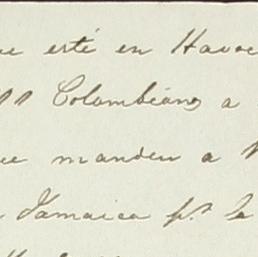 ue esté en Havre
Colombianos a
ue manden a
Jamaica pr. la